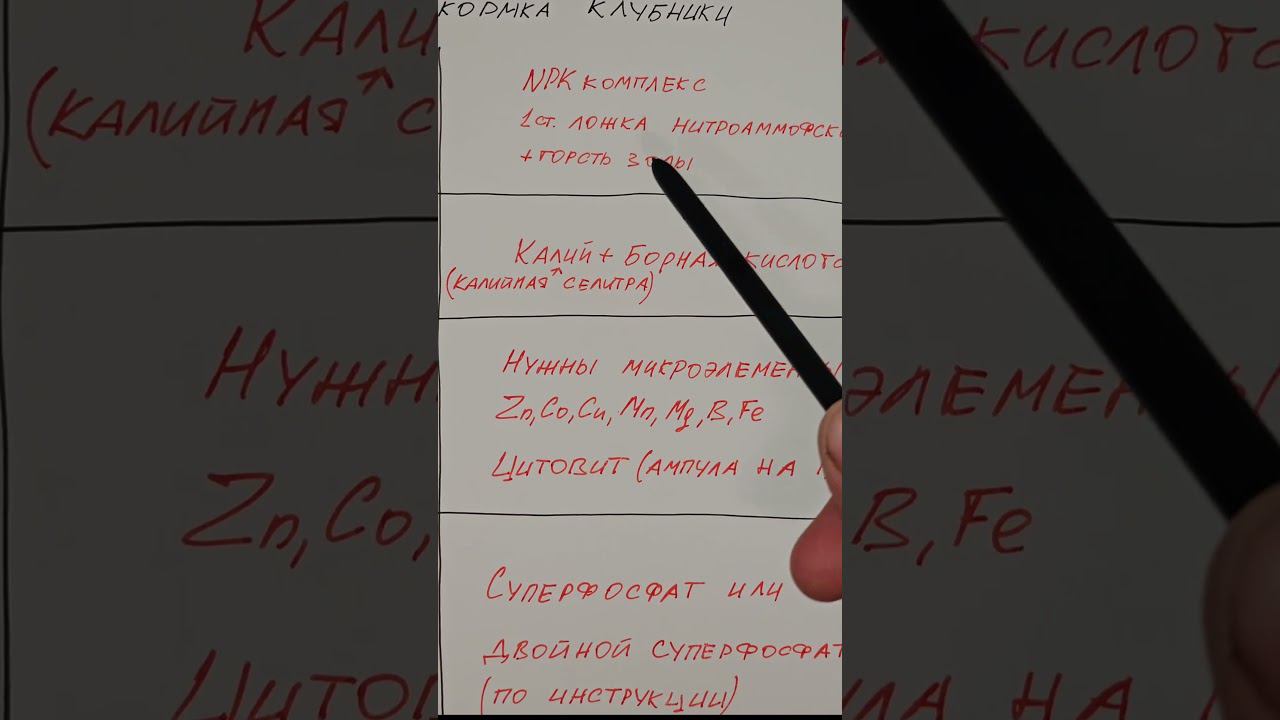 КОРМКА КЛУБНИКИ
NPK КОМПЛЕКС
1 СТ. ЛОЖКА НИТРОАММОФСК
+ ГОРСТЬ ЗОЛЫ
КАЛИЙ + БОРНАЯ КИСЛОТА
(КАЛИЙНАЯ ^ СЕЛИТРА)
НУЖНЫ МИКРОЭЛЕМЕНТЫ
Zn, Co, Cu, Mn, Mg, B, Fe
ЦИТОВИТ (АМПУЛА НА
СУПЕРФОСФАТ ИЛИ
ДВОЙНОЙ СУПЕРФОСФАТ
(ПО ИНСТРУКЦИИ)